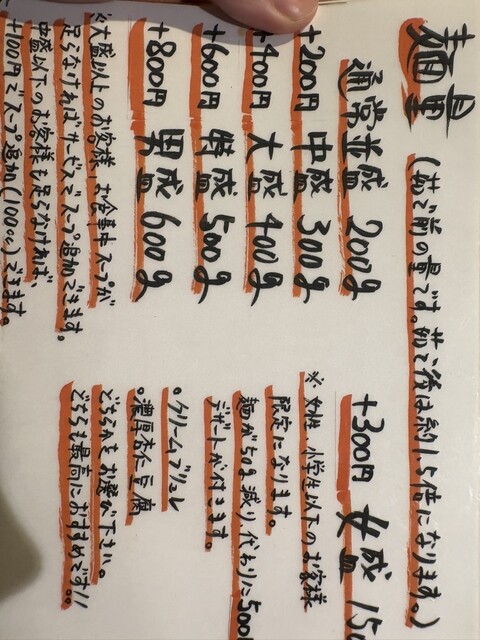 麺量（茹で前の量です。茹で後は約1.5倍になります。）
通常並盛 200g
+200円 中盛 300g
+400円 大盛 400g
+600円 特盛 500g
+800円 男盛 600g
※大盛以上のお客様、お食事中スープが
足らなければサービスでスープ追加できます。
中盛以下のお客様も足らなければ、
+100円でスープ追加(100cc)できます。
+300円 女盛 150
※女性、小学生以下のお客様
限定になります。
麺が50g減り、代わりに500
デザートが付きます。
。クリームブリュレ
。濃厚杏仁豆腐
どちらかをお選び下さい。
どちらも最高におすすめです!!